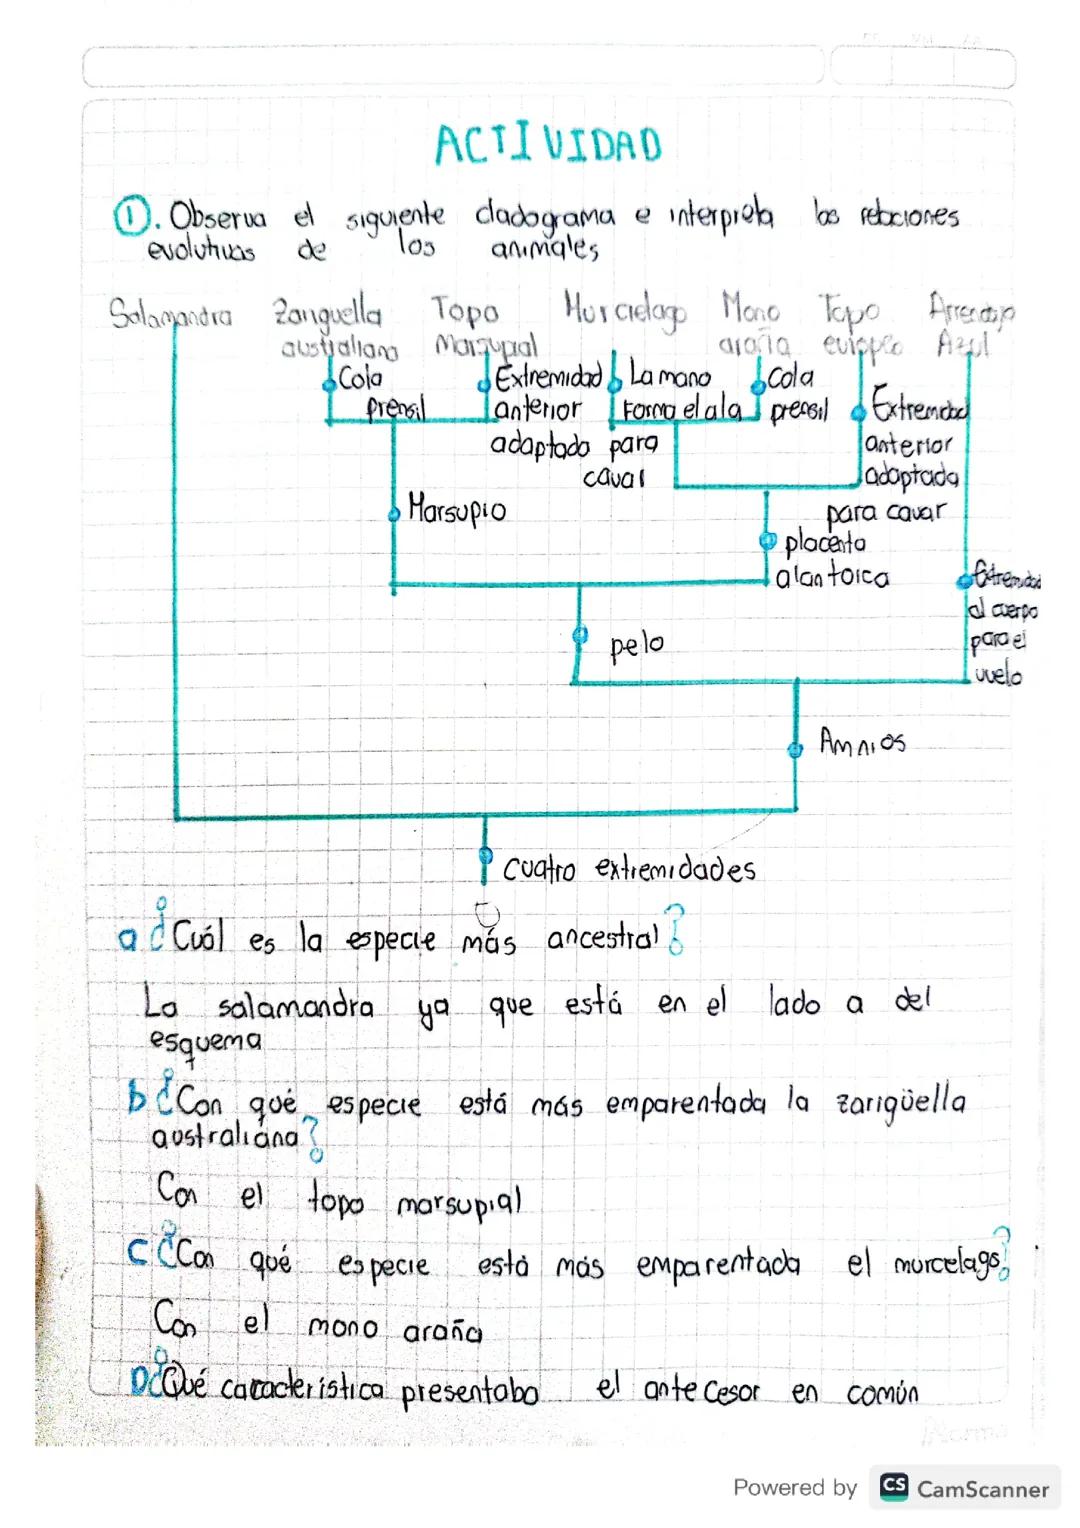 ACTIVIDAD
1. Observa el siguiente cladograma e interpreta las relaciones
evolutivas de los animales
Salamandra Zariguella Topo Murcielago Mono Topo Arrendajo
australiana Marsupial araña europeo Azul
Cola Extremidad La mano Cola
prensil anterior Forma el ala prensil Extremidad
adaptado para anterior
cavar adaptada
Marsupio para cavar
placenta
alantoica Extremidad
al cuerpo
pelo para el
vuelo
Amnios
cuatro extremidades
a ¿Cuál es la especie más ancestral?
La salamandra ya que está en el lado a del
esquema
b ¿Con qué especie está más emparentada la zarigüella
australiana?
Con el topo marsupial
C ¿Con qué especie está más emparentada el murcelago?
Con el mono araña
D ¿Qué característica presentaba el antecesor en común
Norma
Powered by CS CamScanner